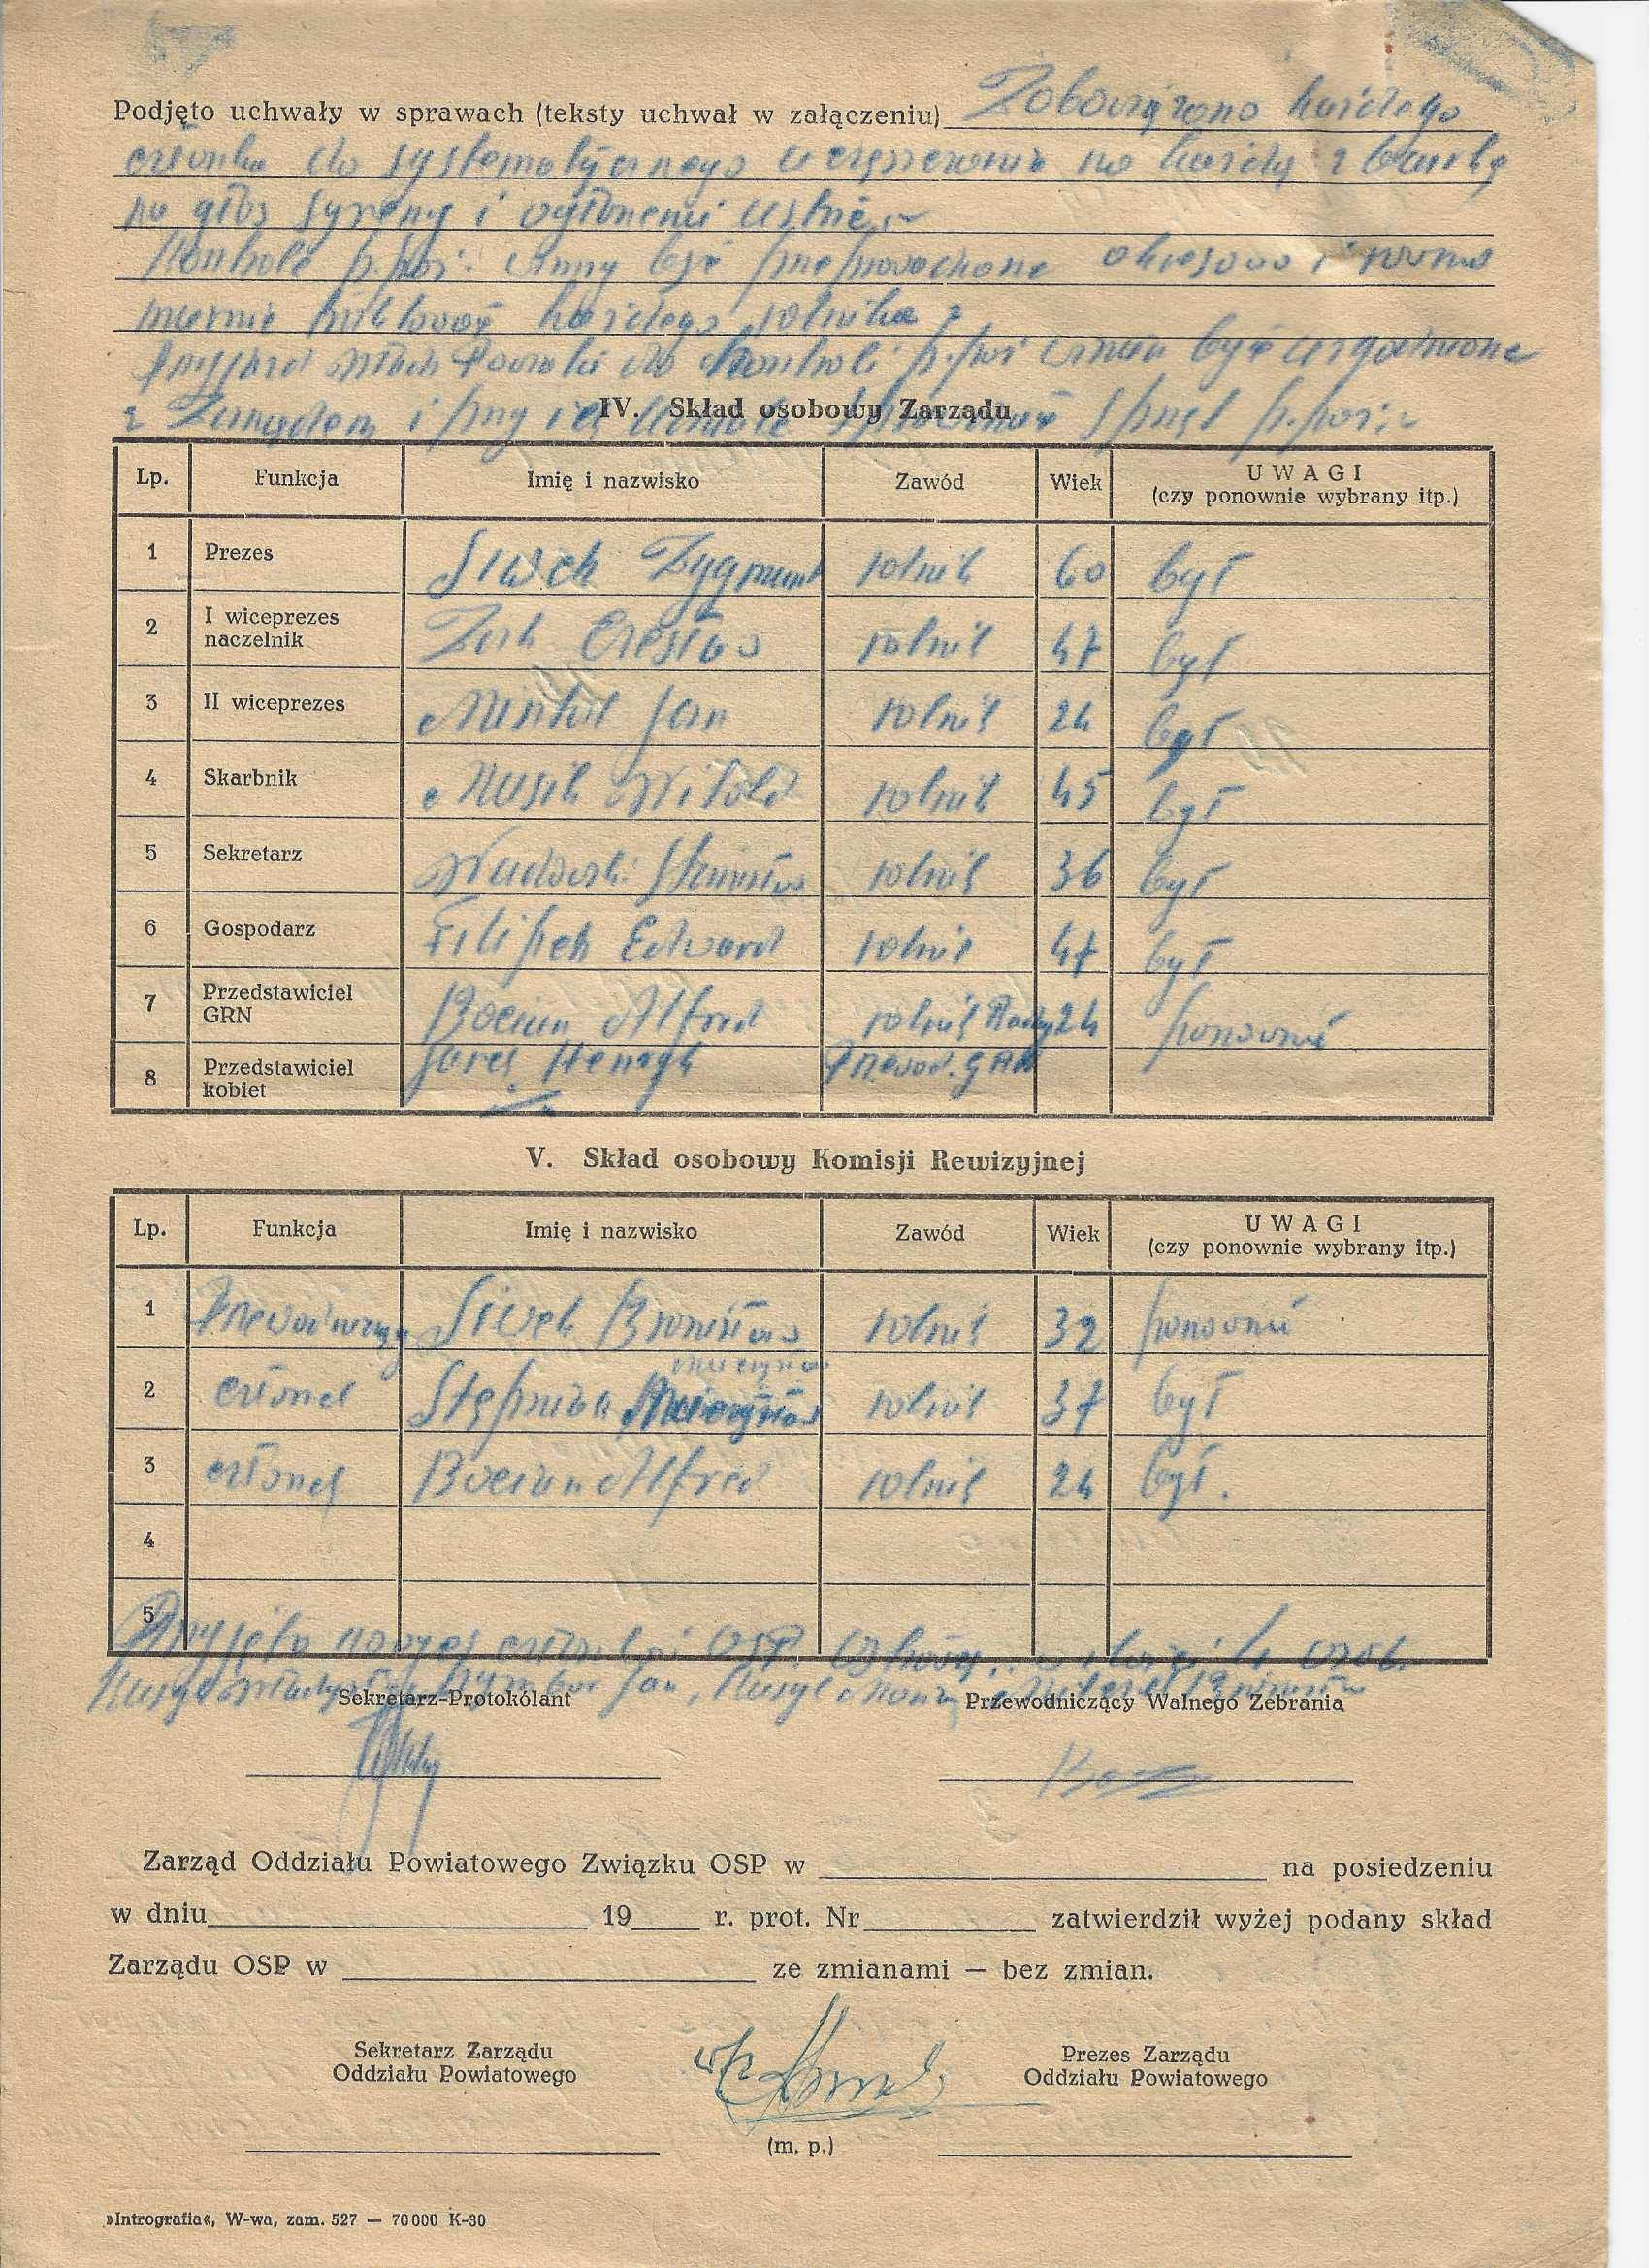 Podjęto uchwały w sprawach (teksty uchwał w załączeniu) Zobowiązano każdego
członka do systematycznego uczęszczania na każdą zbiurkę
na głos syreny i ogłoszeniu ustnie
Kontrole p.poż. winny być przeprowadzone okresowo i równo
miernie każdego rolnika
Przyjazd do kontroli p.poż winien być uzgodniona
z Zarządem i przy jej sprzęt p.poż.
IV. Skład osobowy Zarządu
Lp. Funkcja Imię i nazwisko Zawód Wiek UWAGI (czy ponownie wybrany itp.)
1 Prezes Siwek Zygmunt rolnik 60 był
2 I wiceprezes naczelnik Czesław rolnik 47 był
3 II wiceprezes Jan rolnik 24 był
4 Skarbnik Witold rolnik 45 był
5 Sekretarz Stanisław rolnik 36 był
6 Gospodarz Filipek Edward rolnik 47 był
7 Przedstawiciel GRN Bocian Alfred rolnik 24 ponownie
8 Przedstawiciel kobiet Henryk Przewod. Rady GRN
V. Skład osobowy Komisji Rewizyjnej
Lp. Funkcja Imię i nazwisko Zawód Wiek UWAGI (czy ponownie wybrany itp.)
1 Przewodniczący Siwek Bronisław rolnik 32 ponownie
2 członek Stępniak Mieczysław rolnik 37 był
3 członek Bocian Alfred rolnik 24 był.
4
5
Przyjęto nowych OSP. 4 osób.
Jan,
Sekretarz-Protokólant Przewodniczący Walnego Zebrania
Zarząd Oddziału Powiatowego Związku OSP w na posiedzeniu
w dniu 19 r. prot. Nr zatwierdził wyżej podany skład
Zarządu OSP w ze zmianami — bez zmian.
Sekretarz Zarządu Prezes Zarządu
Oddziału Powiatowego Oddziału Powiatowego
(m. p.)
»Intrografia«, W-wa, zam. 527 — 70000 K-30